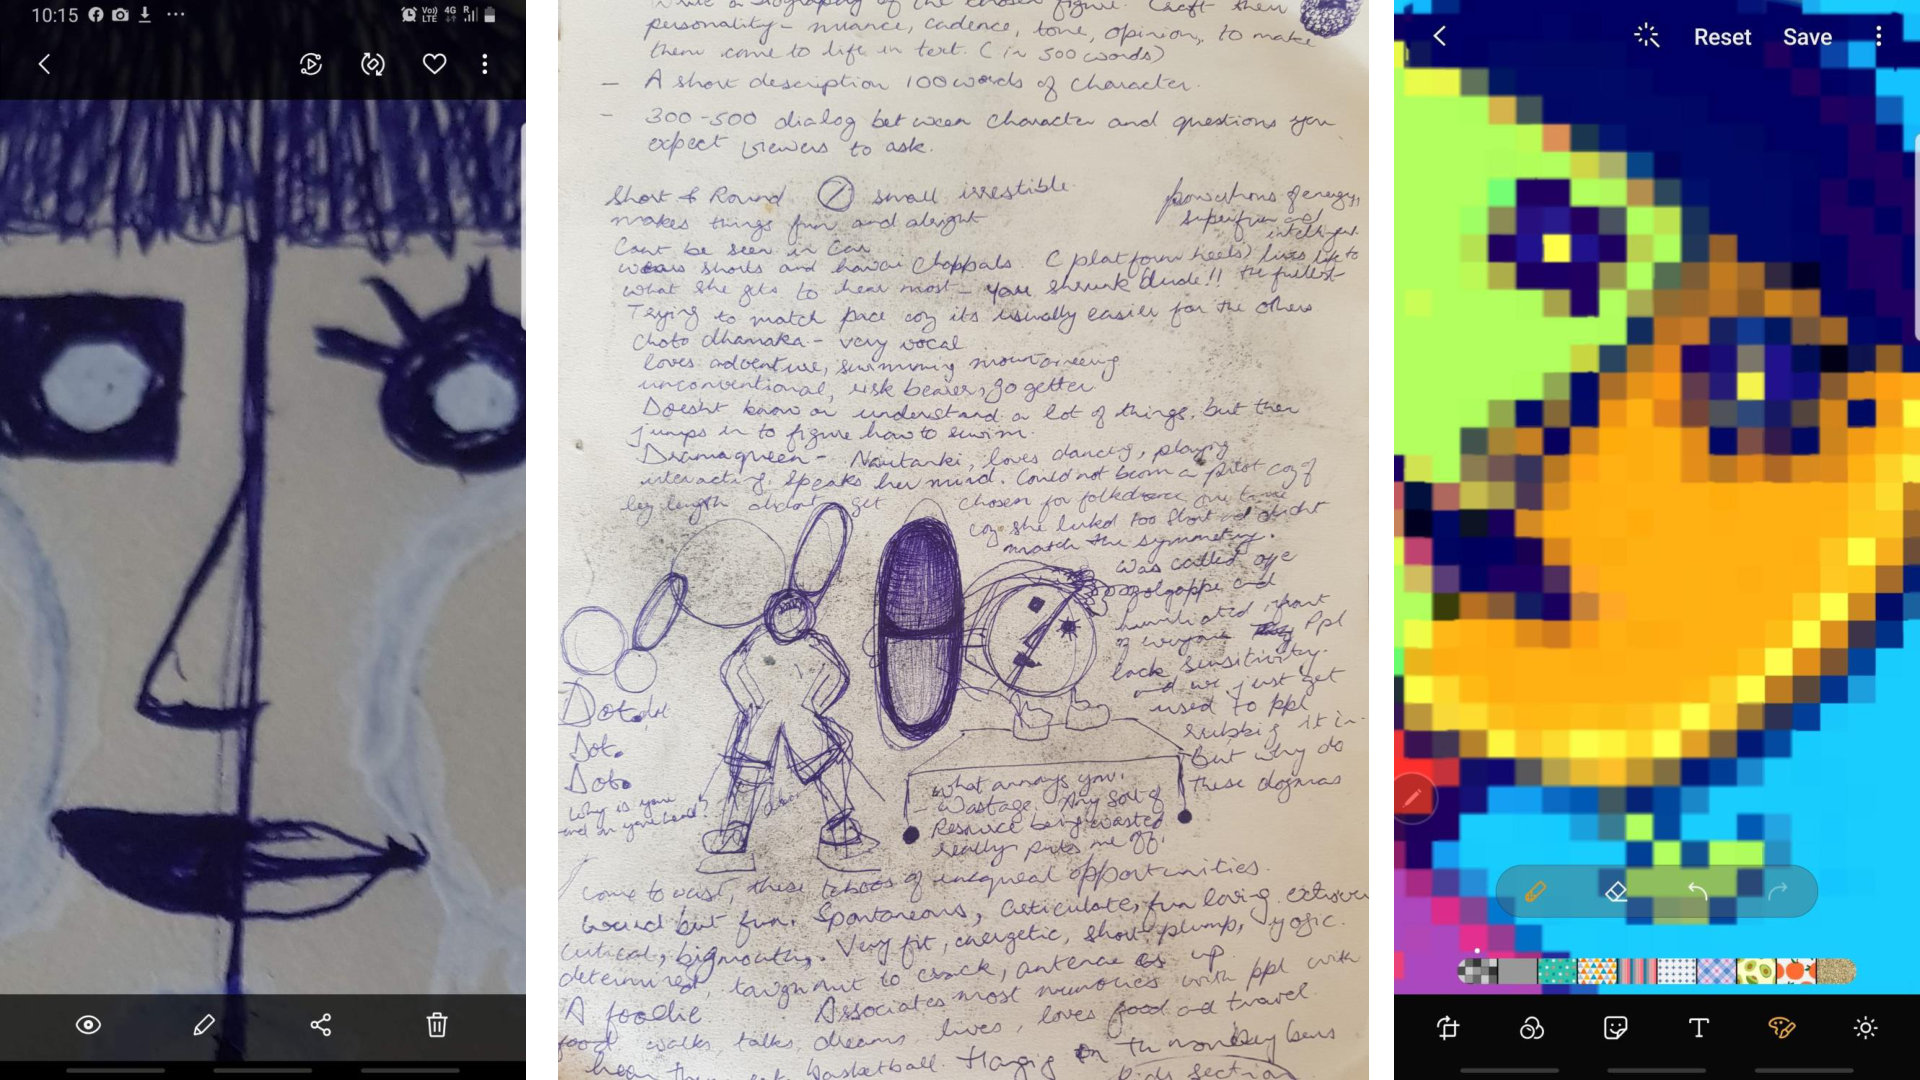 10:15
Vo)) 4G R
LTE
write a biography of the chosen figure. Craft their
personality - nuance, cadence, tone, opinion, to make
them come to life in text. (in 500 words)
- A short description 100 words of character.
- 300-500 dialog between character and questions you
expect viewers to ask.
Short & Round small irrestible
makes things fun and alright
Cant be seen in Car
wears shorts and hawai Chappals (platform heels) lives life to
the fullest
what she gets to hear most - You shrunk dude!!
powerhous of energy,
superfun and
intelligent
Trying to match pace coz its usually easier for the others
choto dhamaka - very vocal
loves adventure, swimming mountaineering
unconventional, risk bearer, go getter
Doesnt know or understand a lot of things, but then
jumps in to figure how to swim.
Dramaqueen - Nautanki, loves dancing, playing
interacting. Speaks her mind. Could not becom a pilot coz of
leg length didnt get
chosen for folkdance one time
coz she looked too short and didnt
match the symmetry.
was called oye
golgappe and
humiliated infront
of everyone Ppl
lack sensitivity.
and we just get
used to ppl
rubbing it in.
But why do
these dogmas
Dot. dot
Dot.
Dot.
Why is your
hand on your head?
what annoys you.
- Wastage. Any sort of
Resource being wasted
really puts me off.
come to exist, these taboos of unequal opportunities.
Weird but fun. Spontaneous, articulate, fun loving. extrover
critical, bigmouth. Very fit, energetic, short plump, yogic.
determined, tough nut to crack, antenae is up.
A foodie Associates most memories with ppl with
food walks, talks, dreams, lives, loves food and travel.
basketball. Hanging on the monkey bars
kids section
Reset Save
T